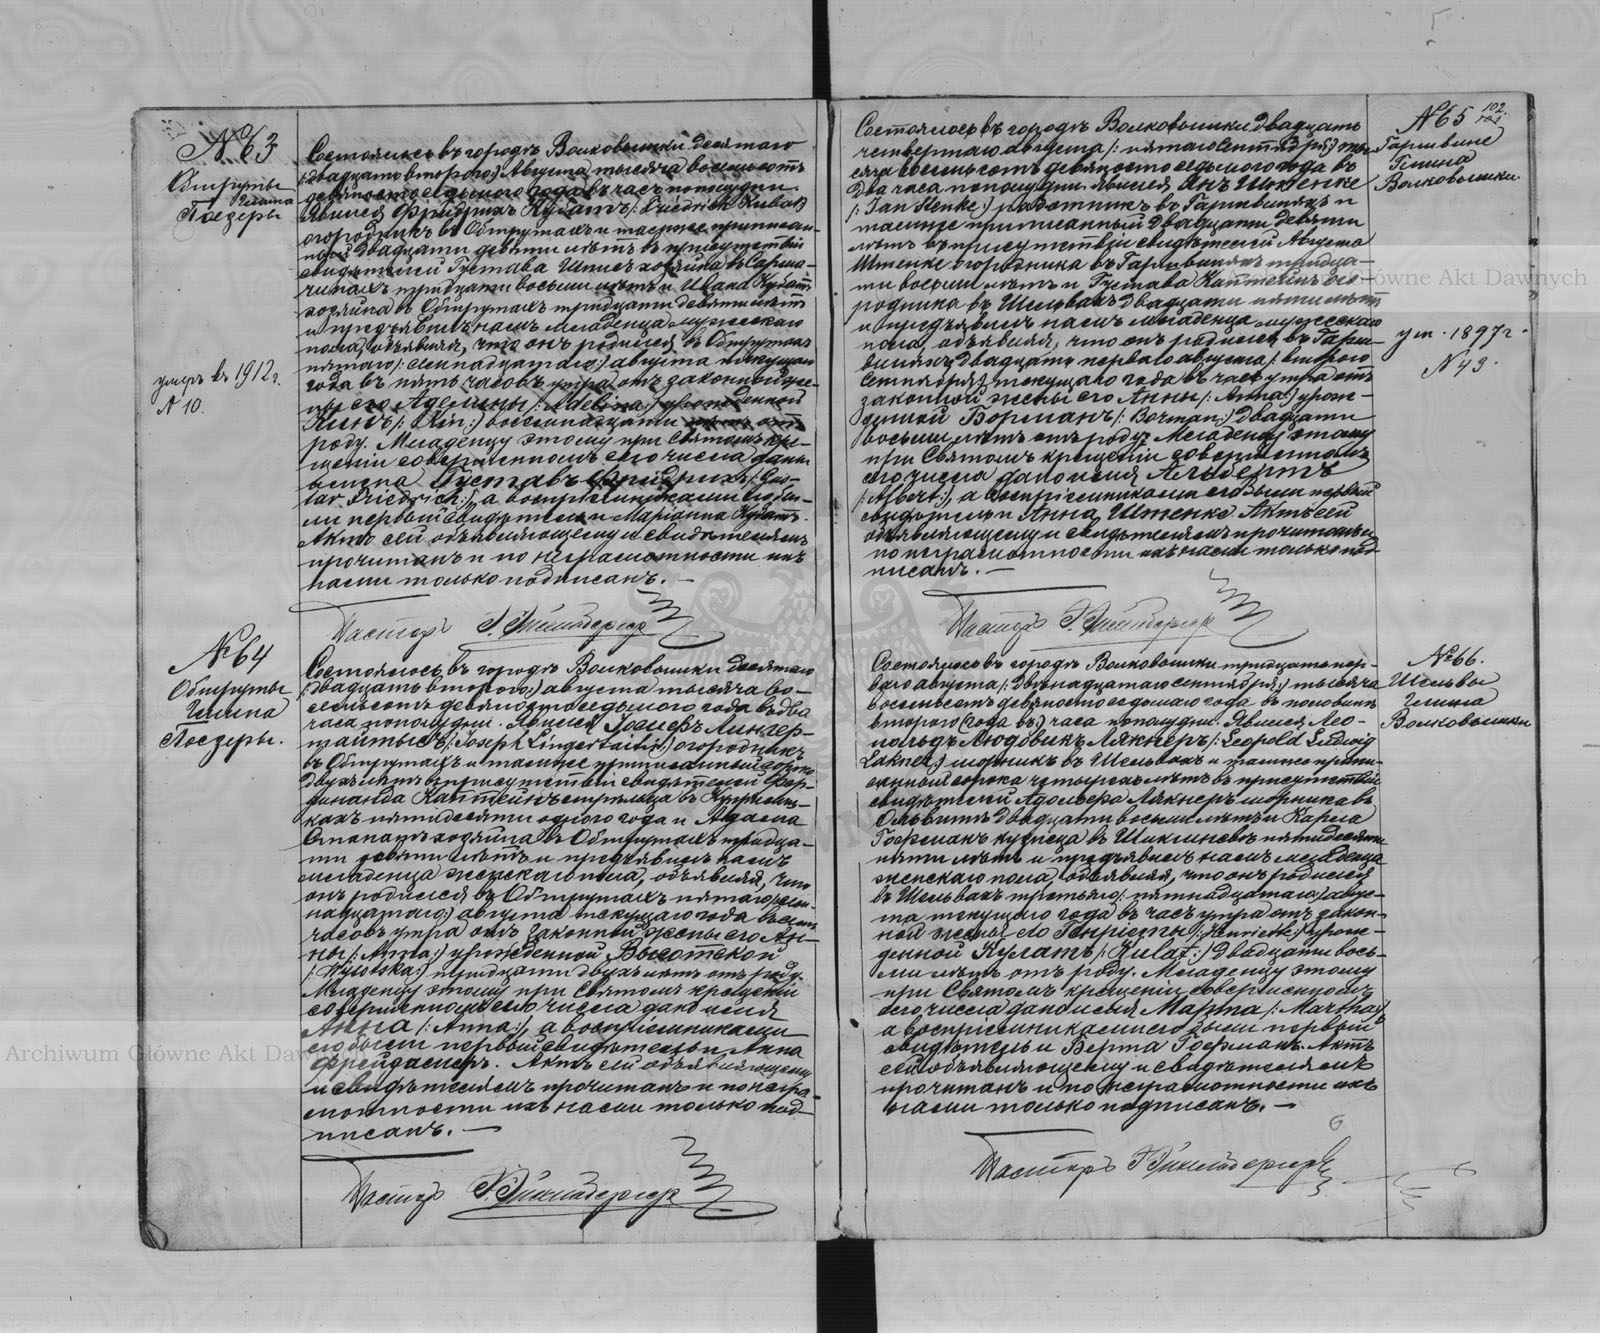 № 63
Обшруты
Гмина
Поезеры
умеръ въ 1912 г.
№ 10.
Состоялось въ городѣ Волковышки десятаго
/:двадцать втораго:/ Августа тысяча восемьсотъ
девяносто седьмого года въ часъ пополудни.
Явился Фридрихъ Кубатъ /: Friedrich Kubat
огородникъ въ Обшрутахъ и тамже приписан-
ный двадцати девяти лѣтъ въ присутствіи
свидѣтелей Густава Шписъ хозяина въ
тридцати восьми лѣтъ и Ивана Кубатъ
хозяина въ Обшрутахъ тридцати девяти лѣтъ
и предъявилъ намъ младенца мужескаго
пола, объявляя, что онъ родился въ Обшрутахъ
пятаго /: семнадцатаго:/ августа текущаго
года въ пять часовъ утра отъ законной же-
ны его Аделины /: Adelina:/ урожденной
Кинъ /: Kin:/ восемнадцати лѣтъ отъ
роду. Младенцу этому при Святомъ кре-
щеніи совершенномъ сего числа даны
имена Густавъ Фридрихъ /: Gus-
tav Friedrich:/, а воспріемниками его бы-
ли первый свидѣтель и Маріанна Кубатъ.
Актъ сей объявляющему и свидѣтелямъ
прочитанъ и по неграмотности ихъ
нами только подписанъ. —
Пасторъ
№ 64
Обшруты
Гмина
Поезеры.
Состоялось въ городѣ Волковышки десятаго
/:двадцать втораго:/ августа тысяча во-
семьсотъ девяносто седьмого года въ два
часа пополудни. Явился Іосифъ Лингер-
тайтысъ /: Joseph Lingertaitis:/ огородникъ
въ Обшрутахъ и тамже приписанный сорока
двухъ лѣтъ въ присутствіи свидѣтелей Фер-
динанда Каптейнъ стрѣльца въ
пятидесяти одного года и Адама
хозяина въ Обшрутахъ тридца-
ти девяти лѣтъ и предъявилъ намъ
младенца женскаго пола, объявляя, что
онъ родился въ Обшрутахъ пятаго /: сем-
надцатаго:/ августа текущаго года въ семь
часовъ утра отъ законной жены его Ан-
ны /: Anna:/ урожденной Высотской
/: Wysotska:/ тридцати двухъ лѣтъ отъ роду.
Младенцу этому при Святомъ крещеніи
совершенномъ сего числа дано имя
Анна /: Anna:/, а воспріемниками
его были первый свидѣтель и Анна
Актъ сей объявляющему
и свидѣтелямъ прочитанъ и по негра-
мотности ихъ нами только под-
писанъ. —
Пасторъ
Состоялось въ городѣ Волковышки двадцать
четвертаго августа /: пятаго сентября:/ ты-
сяча восемьсотъ девяносто седьмого года въ
два часа пополудни. Явился Янъ Штенке
/: Jan Stenke:/ работникъ въ Гарнвинахъ и
тамже приписанный двадцати девяти
лѣтъ въ присутствіи свидѣтелей Августа
Штенке огородника въ Гарнвинахъ тридца-
ти восьми лѣтъ и Густава Каптейнъ ого-
родника въ Шельвахъ двадцати пяти лѣтъ
и предъявилъ намъ младенца мужескаго
пола, объявляя, что онъ родился въ Гарн-
винахъ двадцать перваго августа /: втораго
сентября:/ текущаго года въ часъ утра отъ
законной жены его Анны /: Anna:/ урож-
денной Борманъ /: Borman:/ двадцати
восьми лѣтъ отъ роду. Младенцу этому
при Святомъ крещеніи совершенномъ
сего числа дано имя Альбертъ
/: Albert:/, а воспріемниками его были первый
свидѣтель и Анна Штенке. Актъ сей
объявляющему и свидѣтелямъ прочитанъ и
по неграмотности ихъ нами только под-
писанъ. —
Пасторъ
102
№ 65
Гарнвине
Гмина
Волковышки.
ум. 1897 г.
№ 43.
Состоялось въ городѣ Волковышки тридцать пер-
ваго августа /: двѣнадцатаго сентября:/ тысяча
восемьсотъ девяносто седьмого года въ половинѣ
втораго часа пополудни. Явился Лео-
польдъ Людовикъ Лякнеръ /: Leopold Ludwig
Lakner:/ шорникъ въ Шельвахъ и тамже припи-
санный сорока четырехъ лѣтъ въ присутствіи
свидѣтелей Адольфа Лякнеръ шорника въ
двадцати восьми лѣтъ и Карла
Гофманъ кузнеца въ пятидесяти
пяти лѣтъ и предъявилъ намъ младенца
женскаго пола, объявляя, что онъ родился
въ Шельвахъ третьяго /: пятнадцатаго:/ авгус-
та текущаго года въ часъ утра отъ закон-
ной жены его Генріеты /: Henriette:/ урож-
денной Кулатъ /: Kulat:/ двадцати вось-
ми лѣтъ отъ роду. Младенцу этому
при Святомъ крещеніи совершенномъ
сего числа дано имя Марта /: Martha:/
а воспріемниками его были первый
свидѣтель и Берта Гофманъ. Актъ
сей объявляющему и свидѣтелямъ
прочитанъ и по неграмотности ихъ
нами только подписанъ. —
Пасторъ
№ 66.
Шельвы
Гмина
Волковышки
Archiwum Główne Akt Dawnych
Archiwum Główne Akt Dawnych